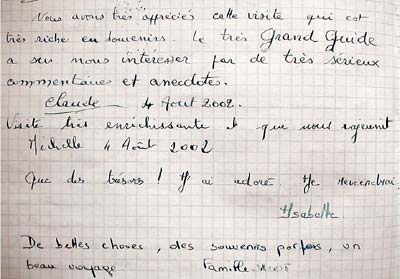 Nous avons très appréciés cette visite qui est
très riche en souvenirs. Le très Grand Guide
a su nous intéresser par de très sérieux
commentaires et anecdotes.
Claude 4 Aout 2002.
Visite très enrichissante et qui nous rajeunit
Michelle 4 Août 2002
Que des trésors ! J'ai adoré. Je reviendrai.
Isabelle
De belles choses, des souvenirs parfois, un
beau voyage Famille